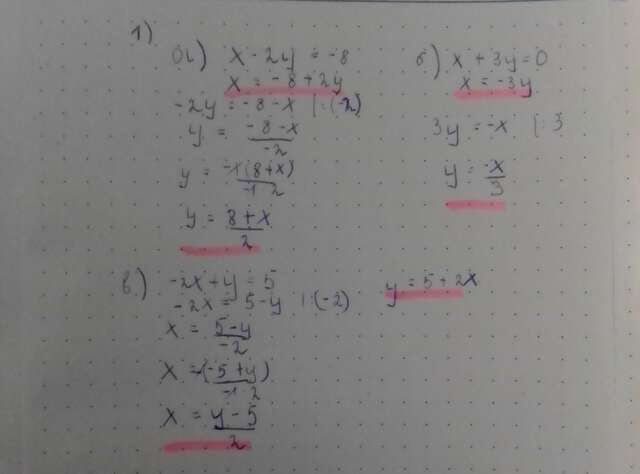 1)
а) x - 2y = -8
x = -8 + 2y
-2y = -8 - x |:(-2)
y = \frac{-8 - x}{-2}
y = \frac{-1(8+x)}{-1 2}
y = \frac{8+x}{2}
б) x + 3y = 0
x = -3y
3y = -x |:3
y = \frac{-x}{3}
в) -2x + y = 5
-2x = 5 - y |:(-2)
x = \frac{5-y}{-2}
x = \frac{-(-5+y)}{-1 2}
x = \frac{y-5}{2}
y = 5 + 2x